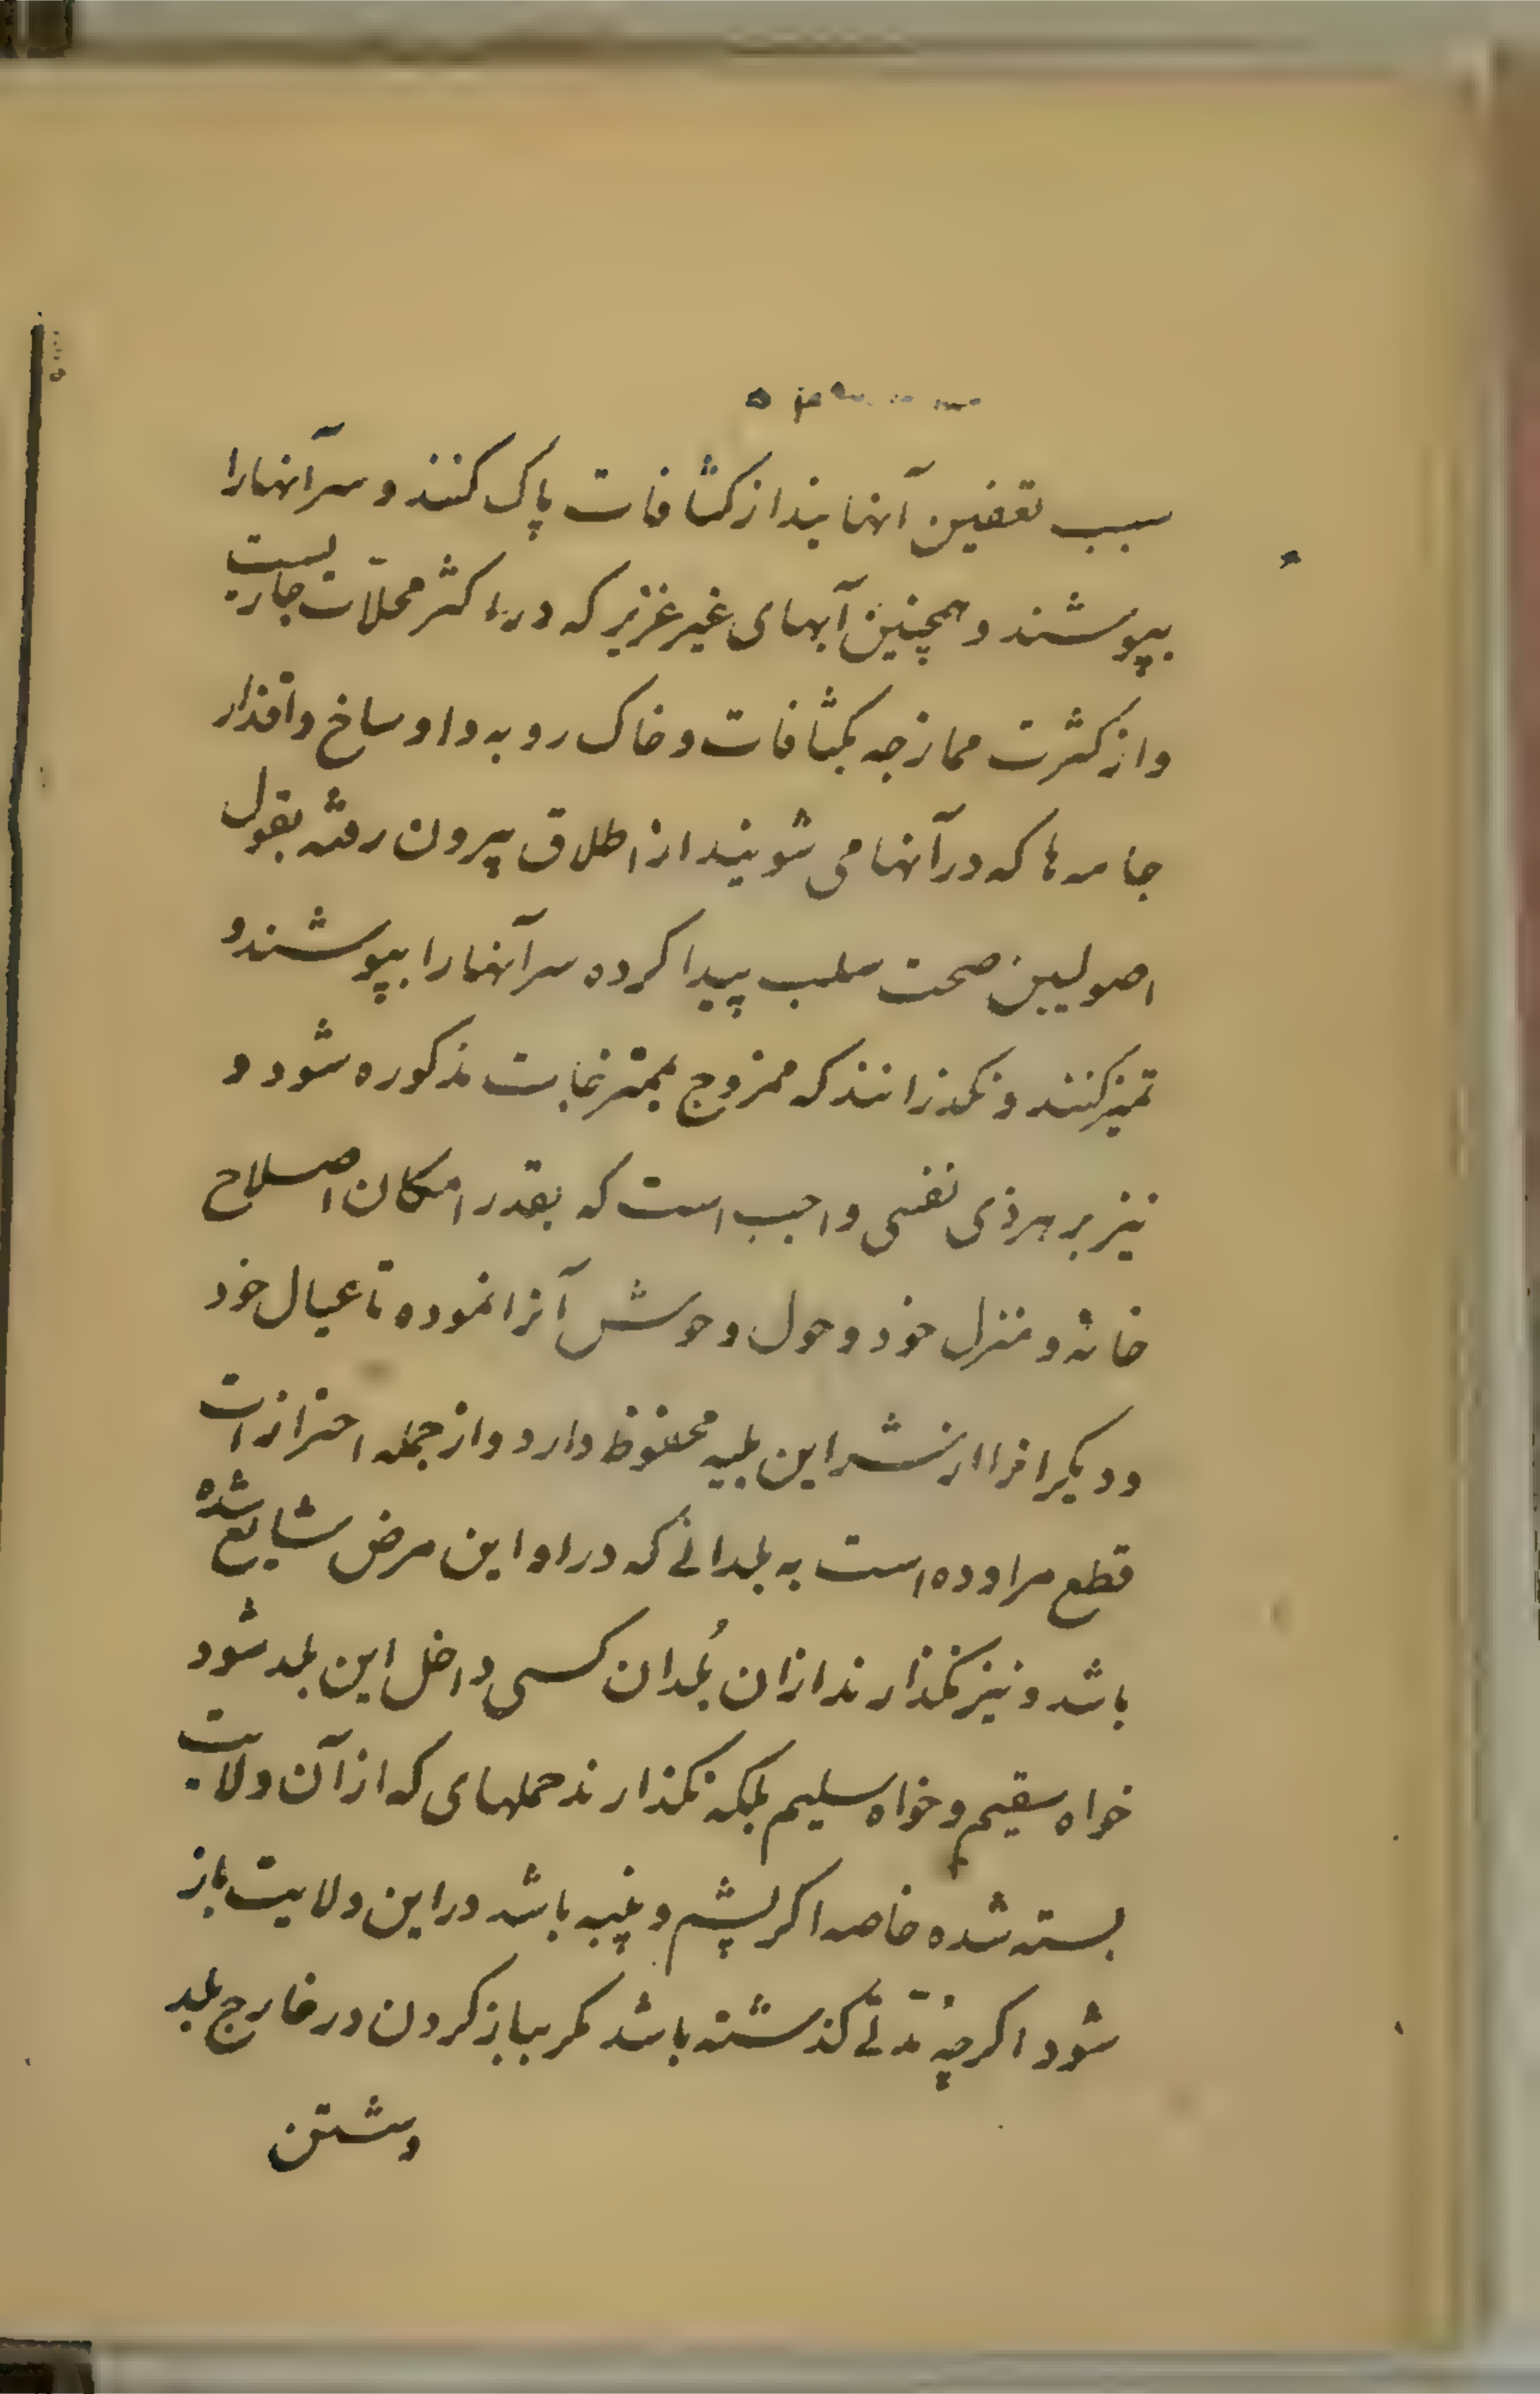 سبب تعفین آنهایند از کثافات پاک کنند و سر آنهارا
بپوشند و همچنین آبهای غیر غزیر که در اکثر محلّات جاریست
و از کثرت ممازجه بکثافات و خاک روبه و اوساخ و اقذار
جامه‌ها که در آنها می شویند از اطلاق بیرون رفته بقول
اصولیین صحت سلب پیدا کرده سر آنهارا بپوشند و
تمیز کنند و نکذرانند که ممزوج بمتر غابت مذکوره شود و
نیز بر هر ذی نفسی واجب است که بقدر امکان اصلاح
خانه و منزل خود و حول و حوش آنرا نموده تا عیال خود
و دیکرانرا از نشر این بلیه محفوظ دارد و از جمله احترازات
قطع مراوده است به بلدانی که در او این مرض شایع شده
باشد و نیز نکذارند ازان بُلدان کسی داخل این بلد شود
خواه سقیم و خواه سلیم بلکه نکذارند حملهای که از آن ولایت
بسته شده خاصه اکر پشم و پنبه باشد در این ولایت باز
شود اکرچه مُدّتی کذشته باشد مکر بباز کردن در خارج بلد
و شستن